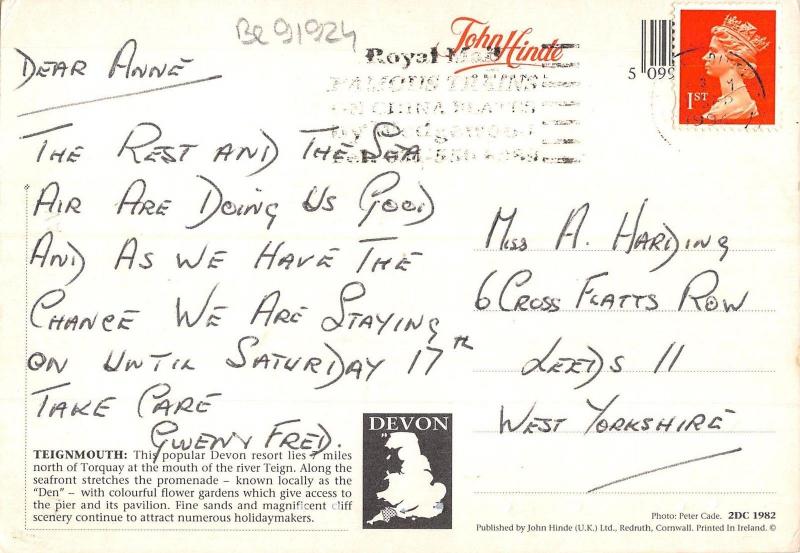 Be 91924
John Hinde
Royal Mail
FAMOUS TRAINS
ON CHINA PLATES
5 099
1ST
DEAR ANNE
THE REST AND THE SEA
AIR ARE DOING US GOOD
AND AS WE HAVE THE
CHANCE WE ARE STAYING
ON UNTIL SATURDAY 17th
TAKE CARE
GWENY FRED.
MISS A. HARDING
6 CROSS FLATTS ROW
LEEDS 11
WEST YORKSHIRE
DEVON
TEIGNMOUTH: This popular Devon resort lies 7 miles
north of Torquay at the mouth of the river Teign. Along the
seafront stretches the promenade – known locally as the
“Den” – with colourful flower gardens which give access to
the pier and its pavilion. Fine sands and magnificent cliff
scenery continue to attract numerous holidaymakers.
Photo: Peter Cade. 2DC 1982
Published by John Hinde (U.K.) Ltd., Redruth, Cornwall. Printed In Ireland. ©